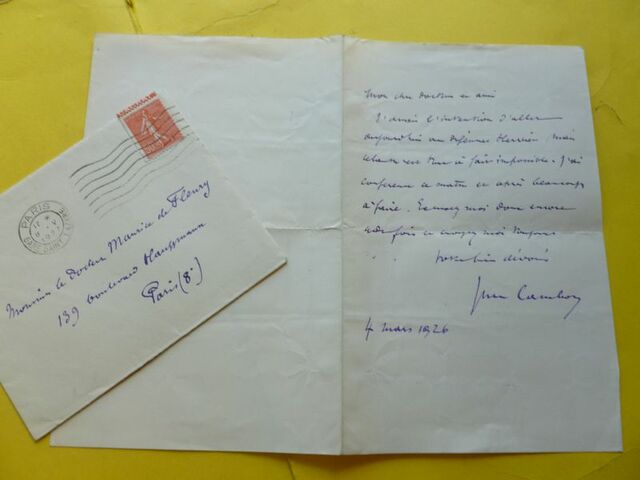 PARIS
Monsieur le Docteur Maurice de Fleury
139 boulevard Haussmann
Paris (8e)
Mon cher Docteur et ami
J'avais l'intention d'aller
aujourd'hui au déjeuner mais
cela est tout à fait impossible. J'ai
conférence ce matin et après beaucoup
à faire. Excusez moi donc encore
cette fois et croyez moi toujours
votre bien dévoué
Jules Cambon
4 mars 1926